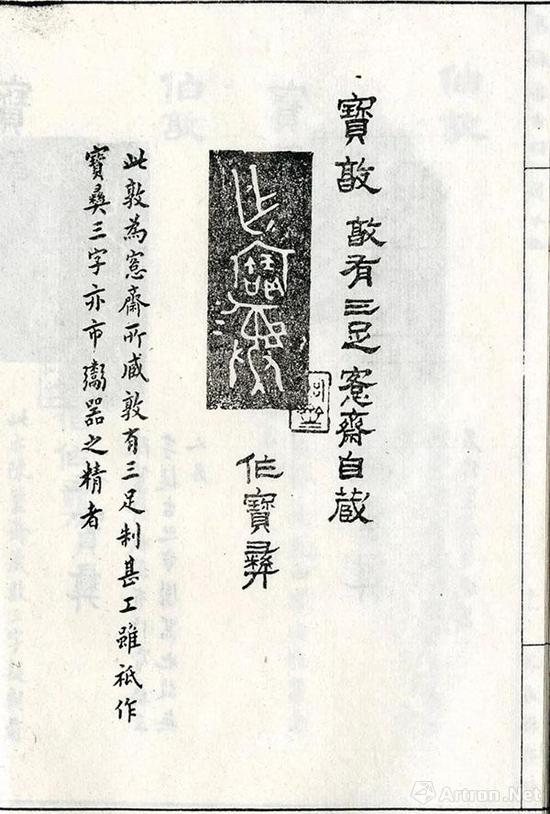 寶敦 敦有三足 愙齋自藏
乍寶彝
作寶彝
此敦為愙齋所臧敦有三足制甚工雖祇作
寶彝三字亦市鬻器之精者
Artron.Net